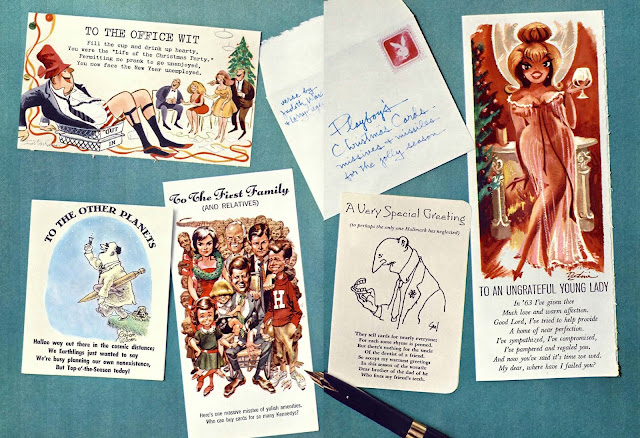 TO THE OFFICE WIT
Fill the cup and drink up hearty,
You were the "Life of the Christmas Party."
Permitting no prank to go unenjoyed,
You now face the New Year unemployed.
OUT
IN
verse by
Judith
+ Larry
Playboy's
Christmas Cards
missives + missiles
for the jolly season
TO THE OTHER PLANETS
Halloo way out there in the cosmic distance;
We Earthlings just wanted to say
We're busy planning our own nonexistence,
But Top-o'-the-Season today!
To The First Family
(AND RELATIVES)
H
Here's one massive missive of yuliah amenities.
Who can buy cards for so many Kennedys?
A Very Special Greeting
(to perhaps the only one Hallmark has neglected)
They sell cards for nearly everyone;
For each some rhyme is penned.
But there's nothing for the uncle
Of the dentist of a friend,
So accept my warmest greetings
In this season of the wreath:
Dear brother of the dad of he
Who fixes my friend's teeth.
TO AN UNGRATEFUL YOUNG LADY
In '63 I've given thee
Much love and warm affection.
Good Lord, I've tried to help provide
A home of near perfection.
I've sympathized, I've compromised,
I've pampered and regaled you,
And now you've said it's time we wed.
My dear, where have I failed you?